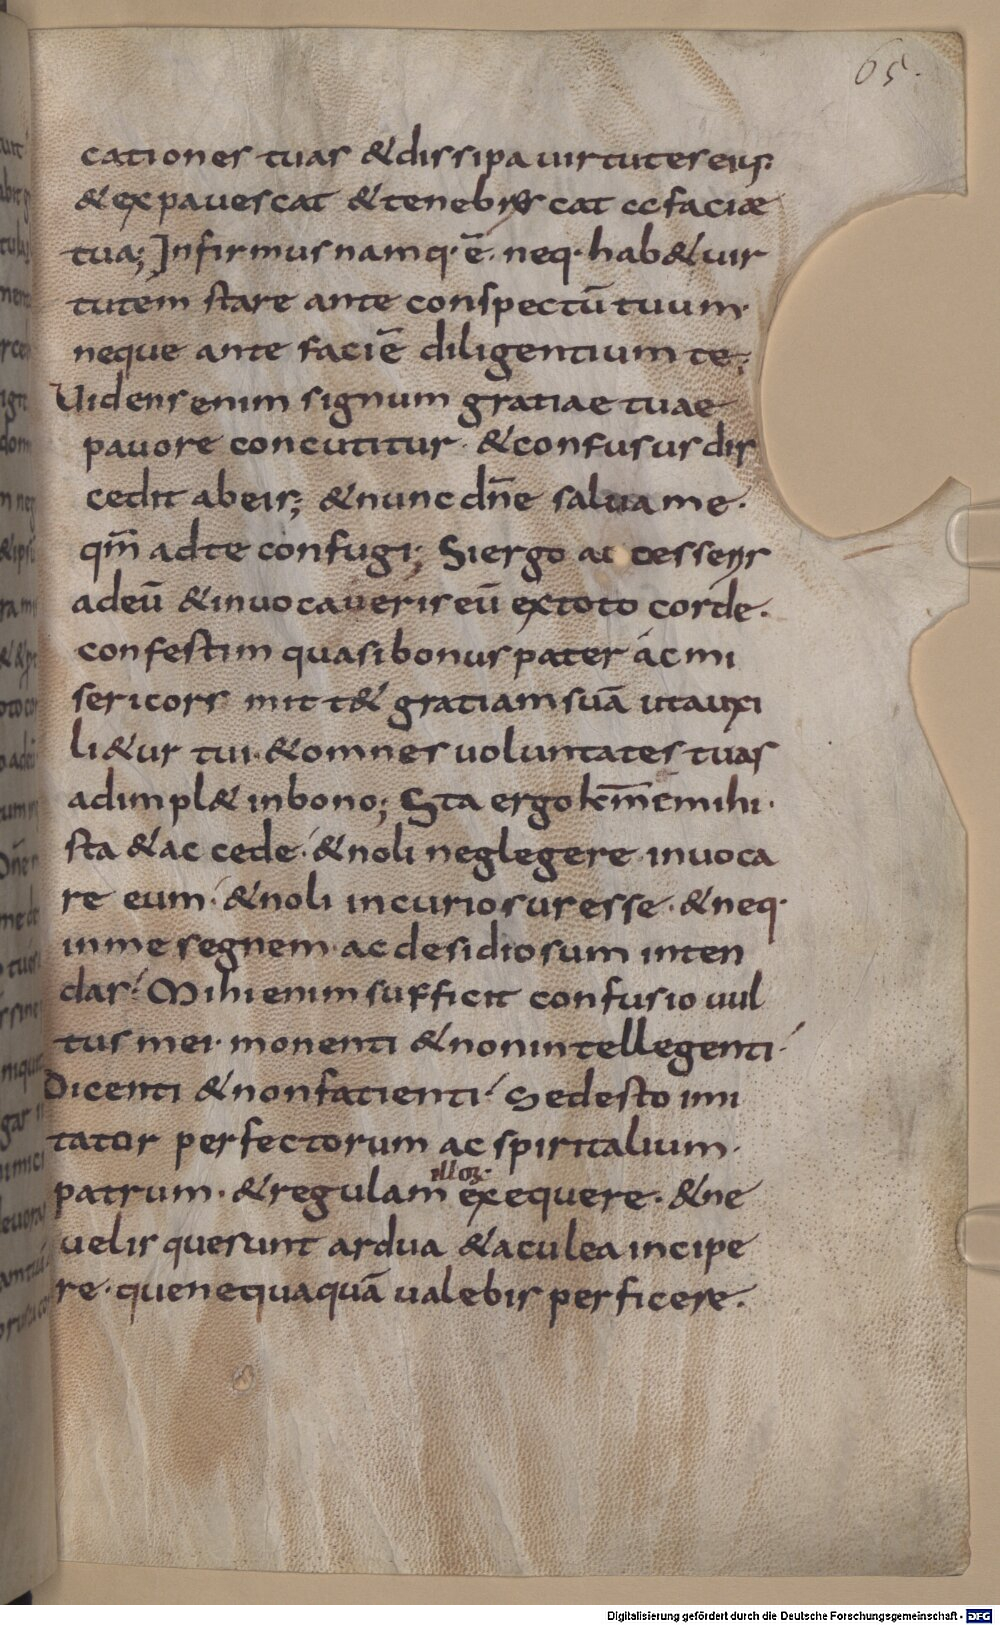 65.
cationes tuas & dissipa uirtutes eius:
& expauescat & tenebrescat a faciae
tua; Infirmus namq· ē· neq· hab& uir
tutem stare ante conspectū tuum·
neque ante faciē diligentium te;
Uidens enim signum gratiae tuae
pauore concutitur· & confusus dis
cedit ab eis; & nunc dn̄e salua me·
qm̄ ad te confugi; Si ergo accesseris
ad eū & inuocaueris eū ex toto corde·
confestim quasi bonus pater ac mi
sericors mittet& gratiam suā ut auxi
li&ur tui· & omnes uoluntates tuas
adimpl& in bono; Sta ergo mihi·
sta & accede· & noli neglegere inuoca
re eum· & noli incuriosus esse· & neq·
in me segnem· ac desidiosum inten
das· Mihi enim sufficit confusio uul
tus mei· monenti & non intellegenti·
Dicenti & non facienti· Sed esto imi
tator perfectorum ac spiritalium·
illoꝝ·
patrum· & regulam exequere· & ne
uelis querunt ardua & aculea incipe
re· que nequaquā ualebis perficere·
Digitalisierung gefördert durch die Deutsche Forschungsgemeinschaft - DFG